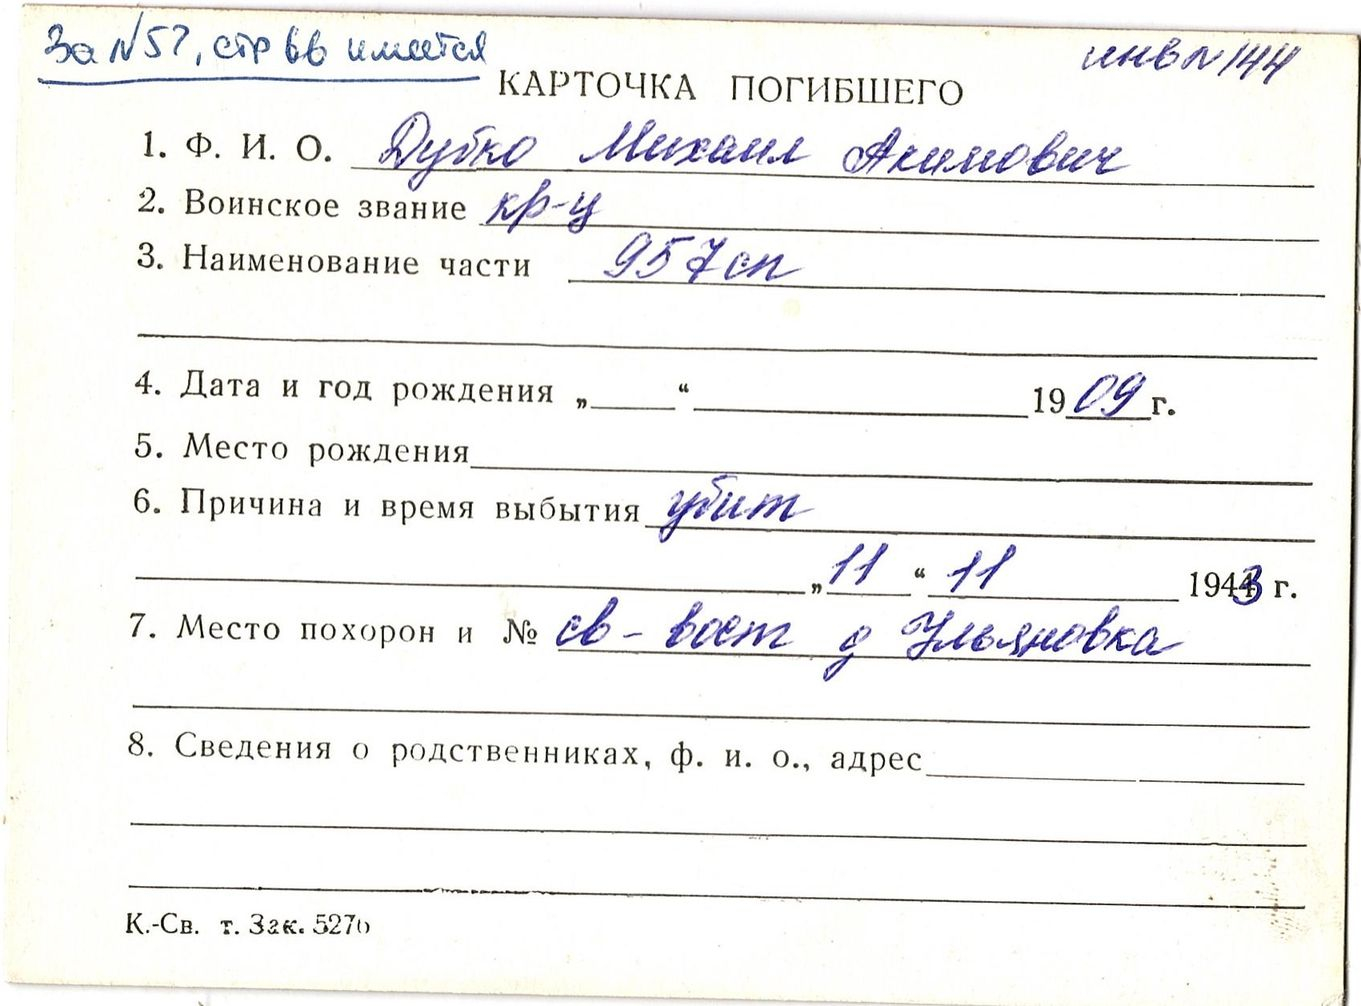 За №57, стр 66 имеется
инв № 144
КАРТОЧКА ПОГИБШЕГО
1. Ф. И. О. Дубко Михаил Акимович
2. Воинское звание кр-ц
3. Наименование части 957 сп
4. Дата и год рождения „ “ 1909 г.
5. Место рождения
6. Причина и время выбытия убит
„11“ 11 1943 г.
7. Место похорон и № св-вост д Ульяновка
8. Сведения о родственниках, ф. и. о., адрес
К.-Св. т. Зак. 5276